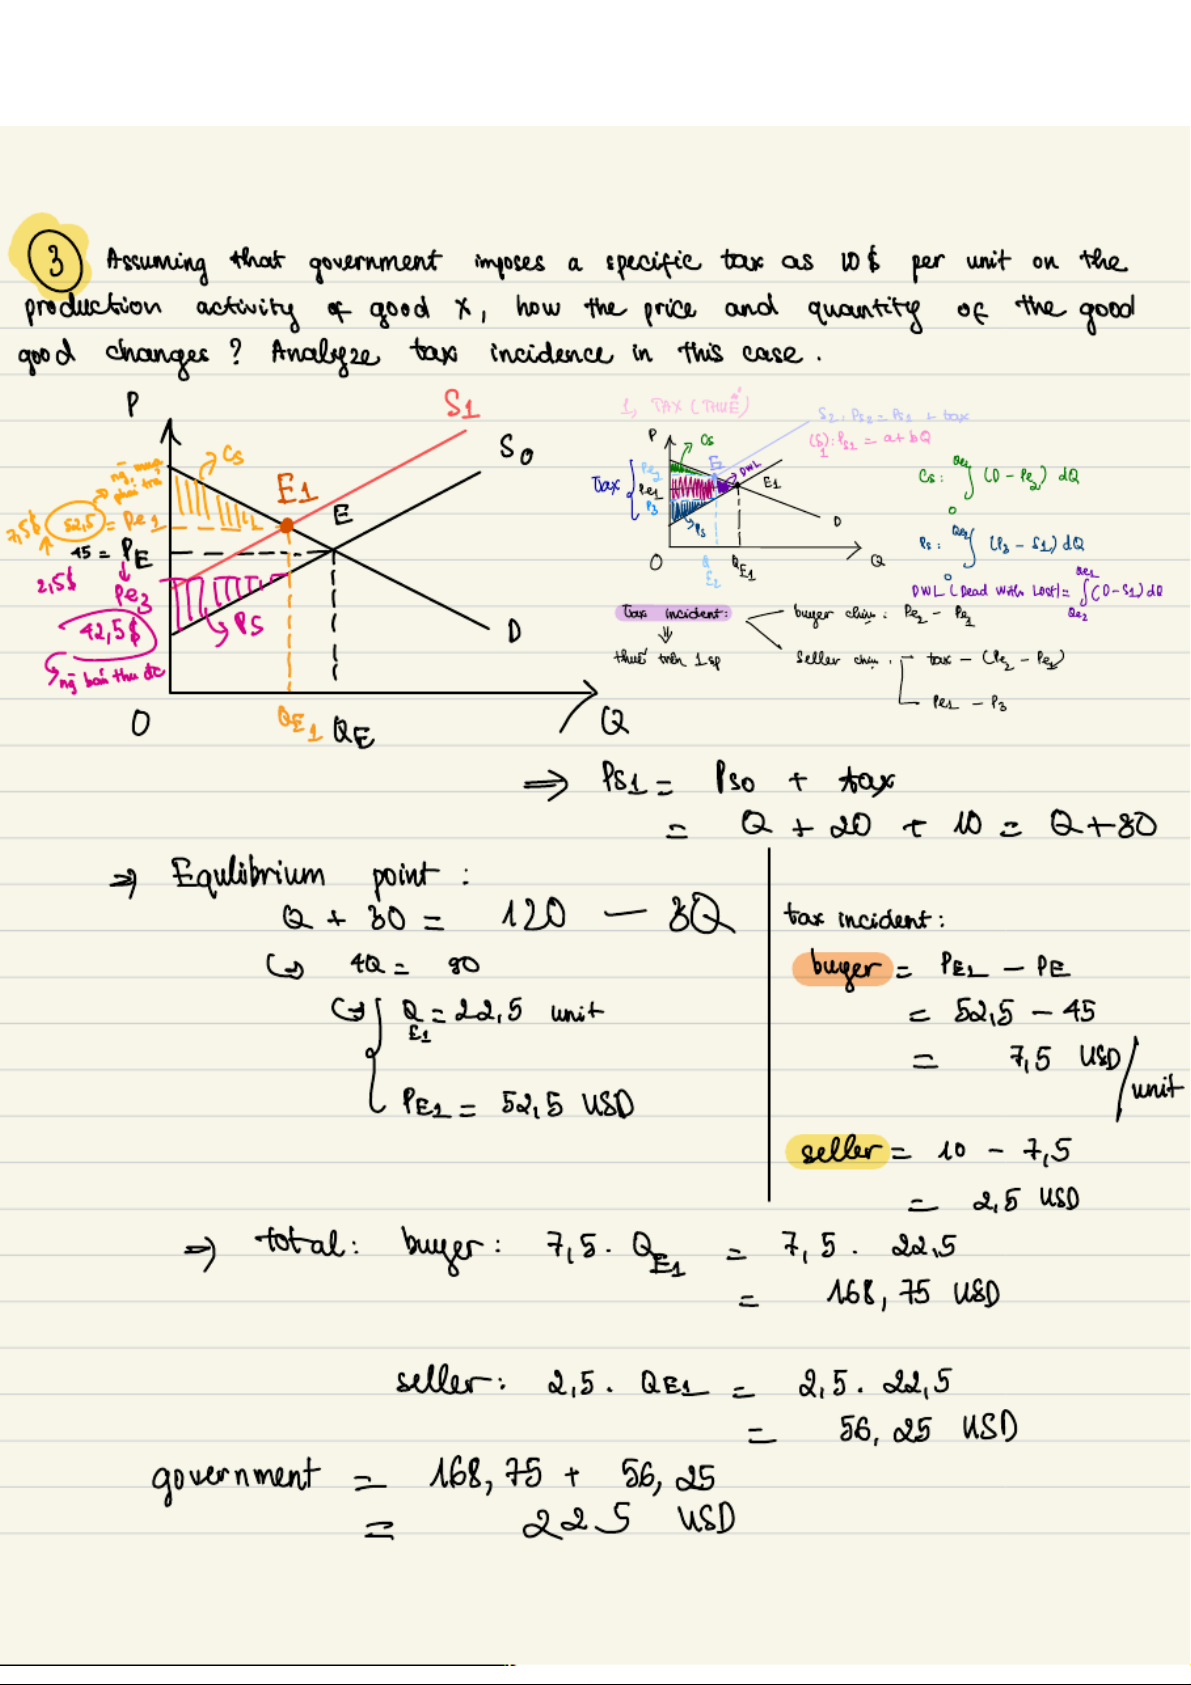 3 Assuming that government imposes a specific tax as 10$ per unit on the
production activity of good X, how the price and quantity of the good
good changes? Analyze tax incidence in this case.
P
S1
S0
CS
ng̃ mua phải trả
E1
E
7,5$
52,5 = Pe1
45 = PE
2,5$
Pe3
42,5$
ng̃ bán thu đc
PS
D
O
QE1
QE
Q
1, TAX (THUẾ)
S2: PS2 = PS1 + tax
(S)1: PS1 = a + bQ
P
CS
Tax
Pe2
Pe1
P3
E2
DWL
E1
PS
D
O
QE2
QE1
Q
Cs: ∫ 0 Qe2 (D - Pe2) dQ
Ps: ∫ 0 Qe2 (P3 - S1) dQ
DWL (Dead With Lost) = ∫ Qe2 Qe1 (D - S1) dQ
Tax incident:
buyer chịu: Pe2 - Pe1
thuế trên 1 sp
seller chịu: tax - (Pe2 - Pe1)
Pe1 - P3
⇒ PS1 = PS0 + tax
= Q + 20 + 10 = Q + 30
⇒ Equlibrium point:
Q + 30 = 120 - 3Q
↪ 4Q = 90
↪ { QE1 = 22,5 unit
PE1 = 52,5 USD
tax incident:
buyer = PE1 - PE
= 52,5 - 45
= 7,5 USD/unit
seller = 10 - 7,5
= 2,5 USD
⇒ total: buyer: 7,5 . QE1 = 7,5 . 22,5
= 168,75 USD
seller: 2,5 . QE1 = 2,5 . 22,5
= 56,25 USD
government = 168,75 + 56,25
= 225 USD